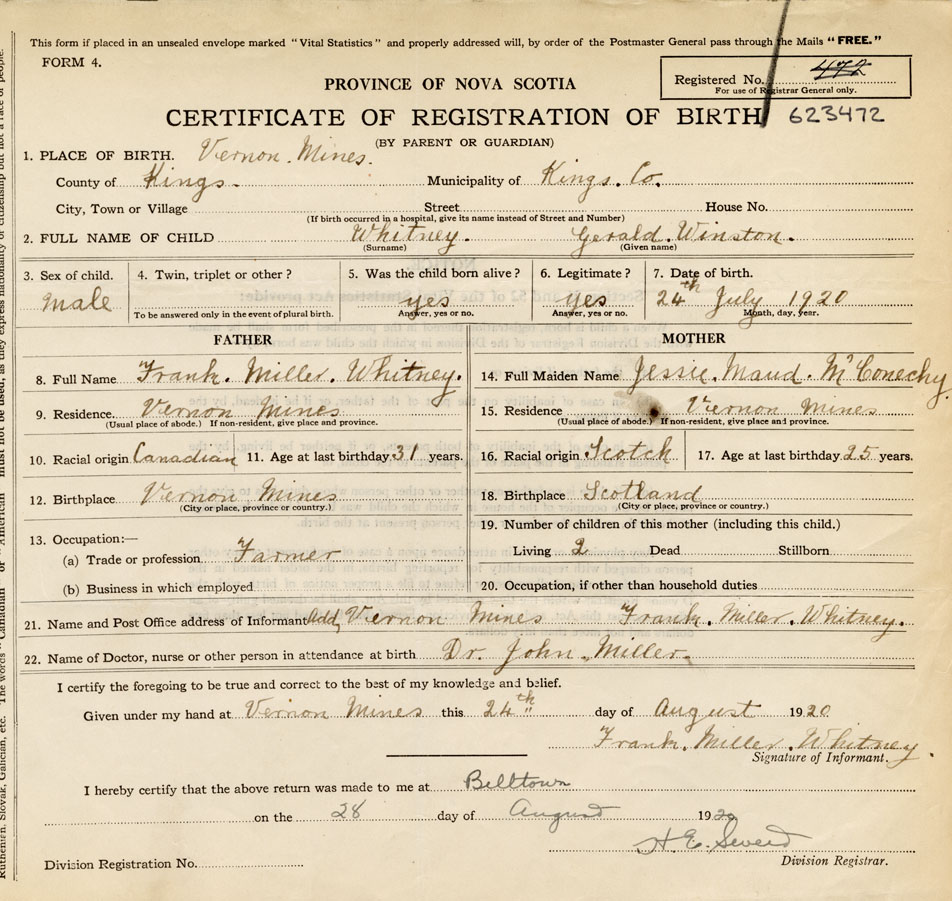 This form if placed in an unsealed envelope marked "Vital Statistics" and properly addressed will, by order of the Postmaster General pass through the Mails "FREE."
FORM 4.
Registered No. 472
For use of Registrar General only.
PROVINCE OF NOVA SCOTIA
CERTIFICATE OF REGISTRATION OF BIRTH 623472
(BY PARENT OR GUARDIAN)
1. PLACE OF BIRTH. Vernon. Mines.
County of Kings. Municipality of Kings. Co.
City, Town or Village Street House No.
(If birth occurred in a hospital, give its name instead of Street and Number)
2. FULL NAME OF CHILD Whitney. Gerald. Winston.
(Surname) (Given name)
3. Sex of child. 4. Twin, triplet or other? 5. Was the child born alive? 6. Legitimate? 7. Date of birth.
male yes yes 24th July 1920
To be answered only in the event of plural birth. Answer, yes or no. Answer, yes or no. Month, day, year.
FATHER MOTHER
8. Full Name Frank. Miller. Whitney. 14. Full Maiden Name Jessie. Maud. McConechy.
9. Residence Vernon Mines 15. Residence Vernon Mines
(Usual place of abode.) If non-resident, give place and province. (Usual place of abode.) If non-resident, give place and province.
10. Racial origin Canadian 11. Age at last birthday 31 years. 16. Racial origin Scotch 17. Age at last birthday 25 years.
12. Birthplace Vernon Mines 18. Birthplace Scotland
(City or place, province or country.) (City or place, province or country.)
19. Number of children of this mother (including this child.)
13. Occupation:—
(a) Trade or profession Farmer Living 2 Dead Stillborn
(b) Business in which employed 20. Occupation, if other than household duties
21. Name and Post Office address of Informant Add, Vernon Mines Frank. Miller. Whitney.
22. Name of Doctor, nurse or other person in attendance at birth Dr. John. Miller.
I certify the foregoing to be true and correct to the best of my knowledge and belief.
Given under my hand at Vernon Mines this 24th day of August 1920
Frank. Miller. Whitney.
Signature of Informant.
I hereby certify that the above return was made to me at Billtown
on the 28 day of August 1920
H. E.
Division Registration No. Division Registrar.